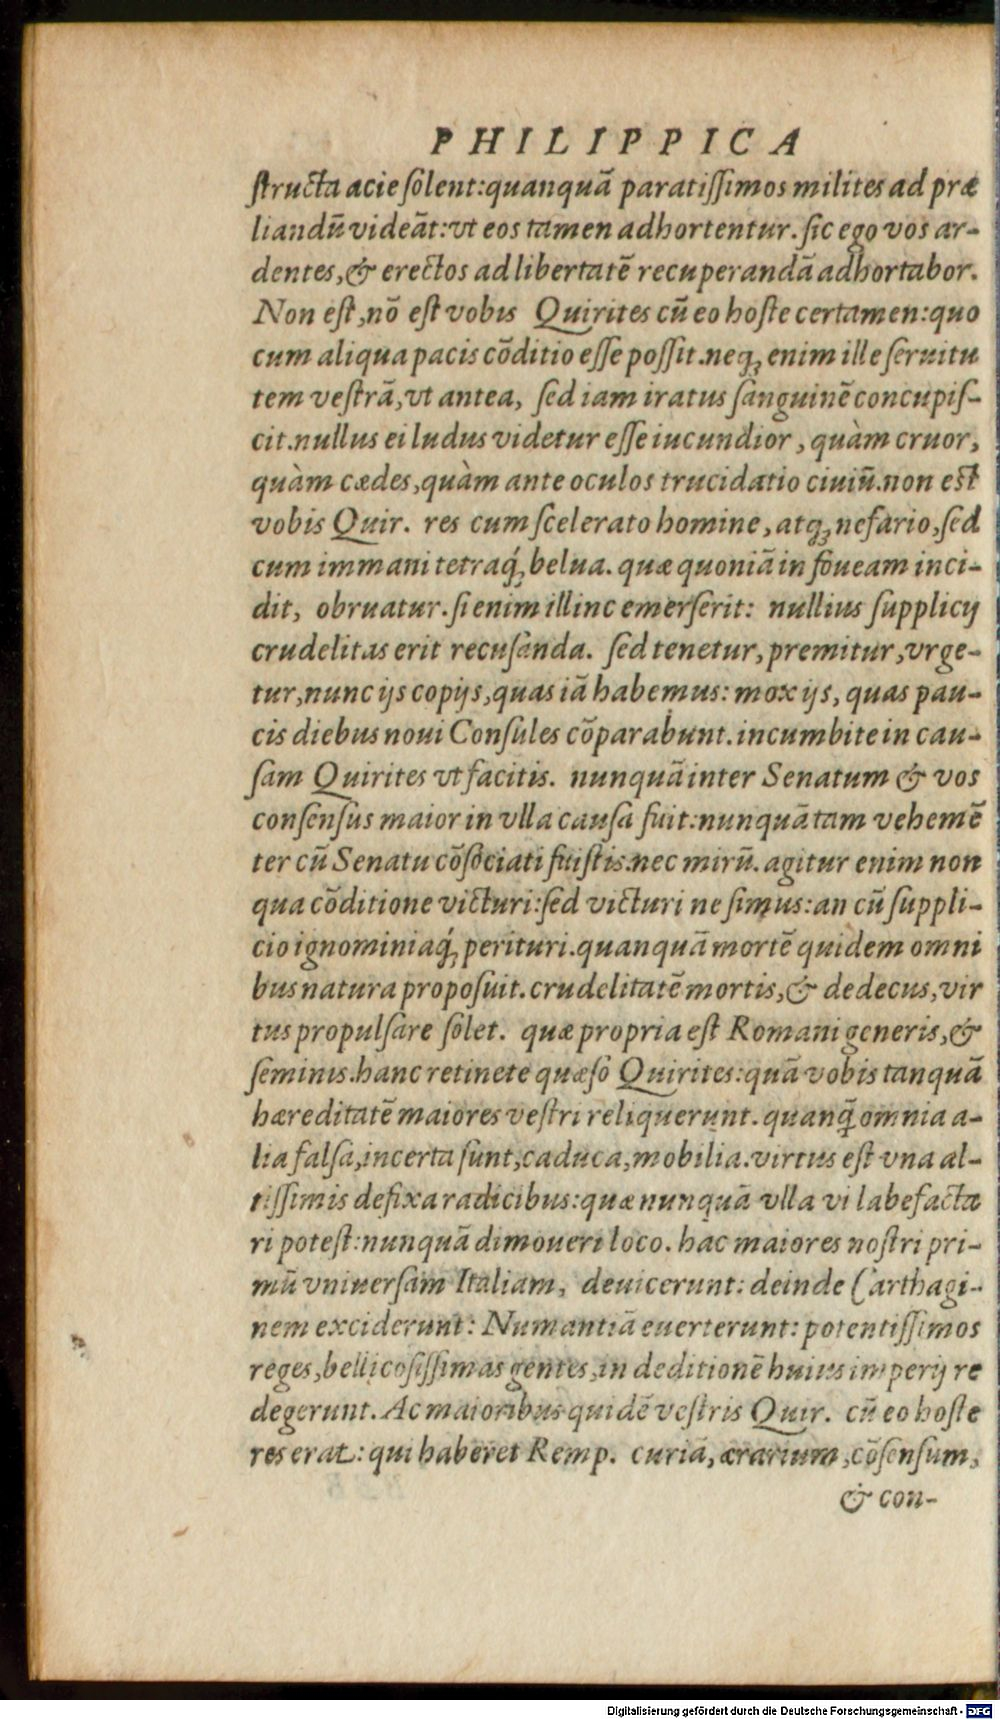 PHILIPPICA
ſtructa acie ſolent: quanquā paratiſſimos milites ad præ
liandū videāt: vt eos tamen adhortentur. ſic ego vos ar-
dentes, & erectos ad libertatē recuperandā adhortabor.
Non eſt, nō eſt vobis Quirites cū eo hoſte certamen: quo
cum aliqua pacis cōditio eſſe poſſit. neqꝫ enim ille ſeruitu
tem veſtrā, vt antea, ſed iam iratus ſanguinē concupiſ-
cit. nullus ei ludus videtur eſſe iucundior, quàm cruor,
quàm cædes, quàm ante oculos trucidatio ciuiū. non eſt
vobis Quir. res cum ſcelerato homine, atqꝫ nefario, ſed
cum immani tetraq́ꝫ belua. quæ quoniā in foueam inci-
dit, obruatur. ſi enim illinc emerſerit: nullius ſupplicij
crudelitas erit recuſanda. ſed tenetur, premitur, vrge-
tur, nunc ijs copijs, quas iā habemus: mox ijs, quas pau-
cis diebus noui Conſules cōparabunt. incumbite in cau-
ſam Quirites vt facitis. nunquā inter Senatum & vos
conſenſus maior in vlla cauſa fuit: nunquā tam vehemē
ter cū Senatu cōſociati fuiſtis. nec mirū. agitur enim non
qua cōditione victuri: ſed victuri ne ſimus: an cū ſuppli-
cio ignominiaq́ꝫ perituri. quanquā mortē quidem omni
bus natura propoſuit. crudelitatē mortis, & dedecus, vir
tus propulſare ſolet. quæ propria eſt Romani generis, &
ſeminis. hanc retinete quæſo Quirites: quā vobis tanquā
hæreditatē maiores veſtri reliquerunt. quanq̄ omnia a-
lia falſa, incerta ſunt, caduca, mobilia. virtus eſt vna al-
tiſſimis defixa radicibus: quæ nunquā vlla vi labefacta
ri poteſt: nunquā dimoueri loco. hac maiores noſtri pri-
mū vniuerſam Italiam, deuicerunt: deinde Carthagi-
nem exciderunt: Numantiā euerterunt: potentiſſimos
reges, bellicoſiſſimas gentes, in deditionē huius imperij re
degerunt. Ac maioribus quidē veſtris Quir. cū eo hoſte
res erat: qui haberet Remp. curiā, ærarium, cōſenſum,
& con-
Digitalisierung gefördert durch die Deutsche Forschungsgemeinschaft - DFG